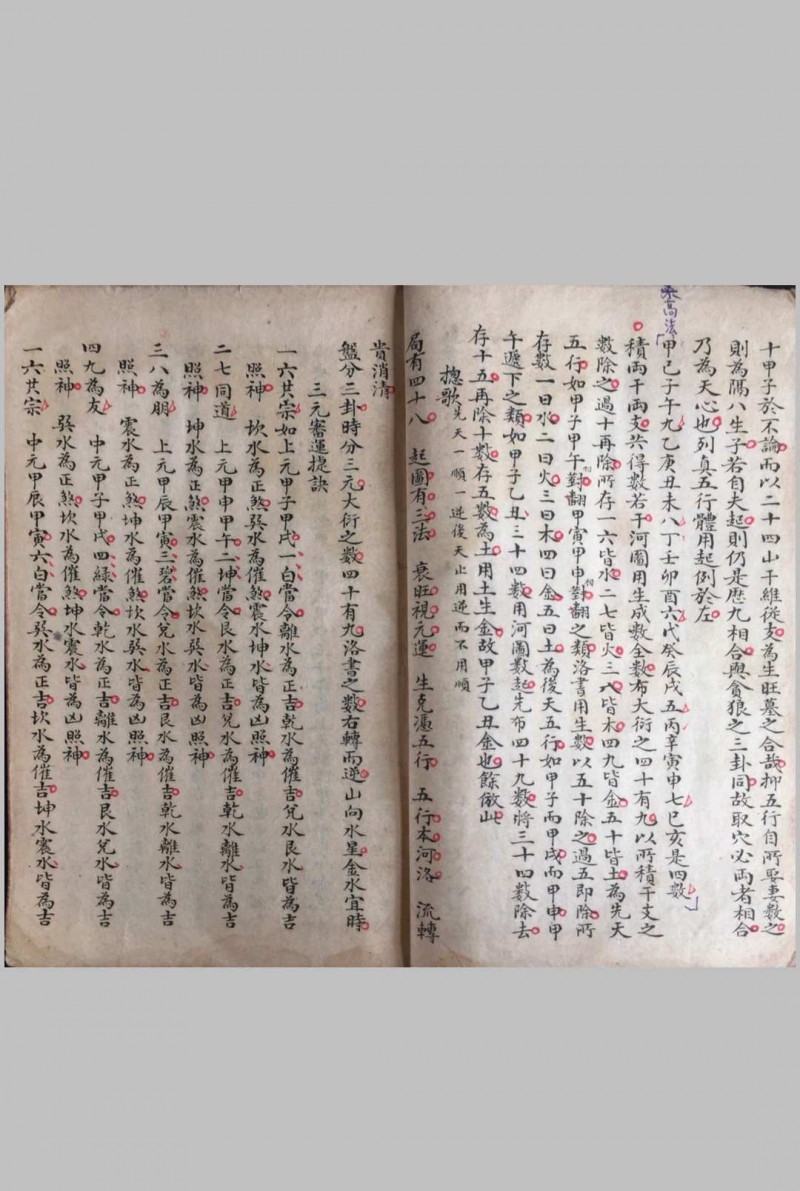 十甲子於不論而以二十四山干維從支為生旺墓之合哉抑五行自所娶妻數之
則為隔八生子若自夫起則仍是歷九相合與貪狼之三卦同故取穴必兩者相合
乃為天心也列真五行體用起例於左
甲己子午九乙庚丑未八丁壬卯酉六戊癸辰戌五丙辛寅申七巳亥是四數
積兩干兩支共得數若干河圖用生成數全數布大衍之四十有九以所積干支之
數除之過十再除所存一六皆水二七皆火三八皆木四九皆金五十皆土為先天
五行如甲子甲午對翻甲寅甲申對翻之類洛書用生數以五十除之過五即除所
存數一曰水二曰火三曰木四曰金五曰土為後天五行如甲子而甲戌而甲申甲
午遞下之類如甲子乙丑三十四數用河圖數起先布四十九數將三十四數除去
存十五再除十數存五數為土用土生金故甲子乙丑金也餘倣此
摠歌 先天一順一逆後天止用逆而不用順
局有四十八 起圖有三法 衰旺視元運 生克憑五行 五行本河洛 流轉
貴消清
盤分三卦時分三元大衍之數四十有九洛書之數右轉而逆山向水星金水宜時
三元審運捷訣
一六共宗如上元甲子甲戌一白當令離水為正吉乾水為催吉兌水艮水皆為吉
照神 坎水為正煞巽水為催煞震水坤水皆為凶照神
二七同道 上元甲申甲午二坤當令艮水為正吉兌水為催吉乾水離水皆為吉
照神 坤水為正煞震水為催煞坎水巽水皆為凶照神
三八為朋 上元甲辰甲寅三碧當令兌水為正吉艮水為催吉乾水離水皆為吉
照神 震水為正煞坤水為催煞坎水巽水皆為凶照神
四九為友 中元甲子甲戌四綠當令乾水為正吉離水為催吉艮水兌水皆為吉
照神 巽水為正煞坎水為催煞坤水震水皆為凶照神
一六共宗 中元甲辰甲寅六白當令巽水為正吉坎水為催吉坤水震水皆為吉